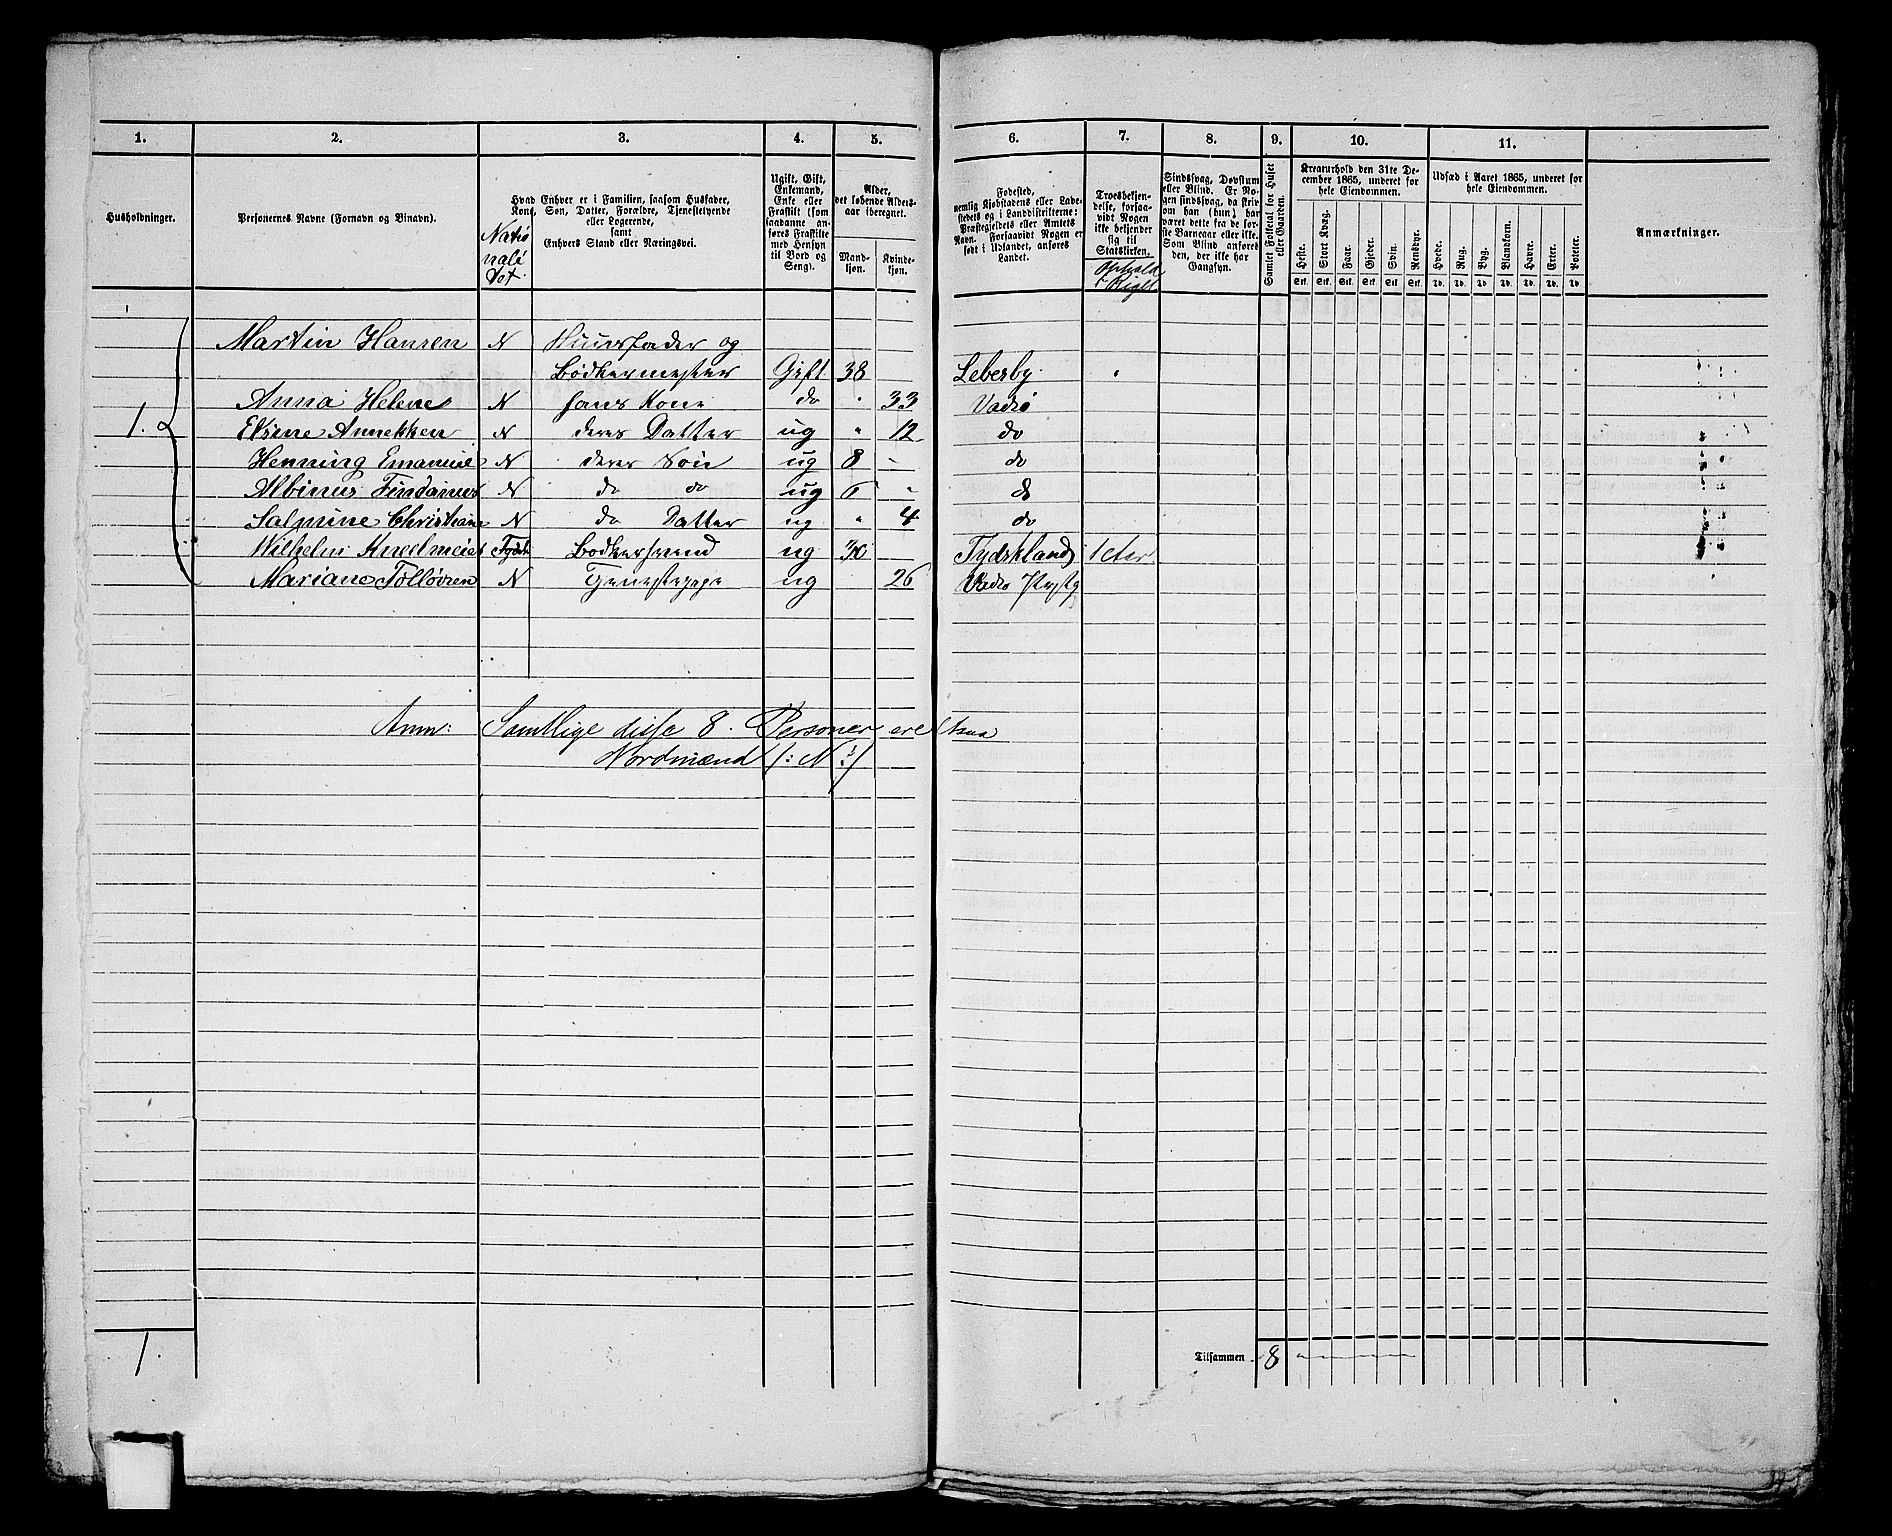 1. 2. 3. 4. 5. 6. 7. 8. 9. 10. 11.
Husholdninger.
Personernes Navne (Fornavn og Binavn).
Hvad Enhver er i Familien, saasom Husfader, Kone, Søn, Datter, Forældre, Tjenestetyende eller Logerende, samt Enhvers Stand eller Næringsvei.
Natio
nali
tet.
Ugift, Gift, Enkemand, Enke eller Fraskilt (som saadanne anføres Fraskilte med Hensyn til Bord og Seng).
Alder, det løbende Aldersaar iberegnet.
Mandkjøn.
Kvindekjøn.
Fødested, nemlig Kjøbstadens eller Ladestedets og i Landdistrikterne: Præstegjeldets eller Amtets Navn. Forsaavidt Nogen er født i Udlandet, anføres Landet.
Troesbekjendelse, forsaavidt Nogen ikke bekjender sig til Statskirken.
Ophold
i Riget
Sindssvag, Døvstum eller Blind. Er Nogen sindssvag, da skrives om han (hun) har været dette fra de første Barneaar eller ikke. Som Blind anføres den, der ikke har Gangsyn.
Samlet Folketal for Huset eller Gaarden.
Kreaturhold den 31te December 1865, underet for hele Eiendommen.
Heste. Stort Kvæg. Faar. Gjeder. Svin. Rensdyr.
Stk. Stk. Stk. Stk. Stk. Stk.
Udsæd i Aaret 1865, underet for hele Eiendommen.
Hvede. Rug. Byg. Blandkorn. Havre. Erter. Poteter.
Td. Td. Td. Td. Td. Td. Td.
Anmærkninger.
Martin Hansen N Huusfader og
Bødkermester Gift 38 Leberby
Anna Helene N hans Kone do " 33 Vadsø
1. Elsine Annekken N deres Datter ug " 12 do
Henning Emanuel N deres Søn ug 8 - do
Albinus Findanus N do do ug 6 - do
Salmine Christiane N do Datter ug " 4 do
Wilhelm Kneelmeier Tydsk Bødkersvend ug 30 - Tydskland 1 Aar
Mariane Tolløvsen N Tjenestepige ug 26 Vadsø Prstg
Anm: Samtlige disse 8. Personer ere
Nordmænd (: N :)
1.
Tilsammen 8